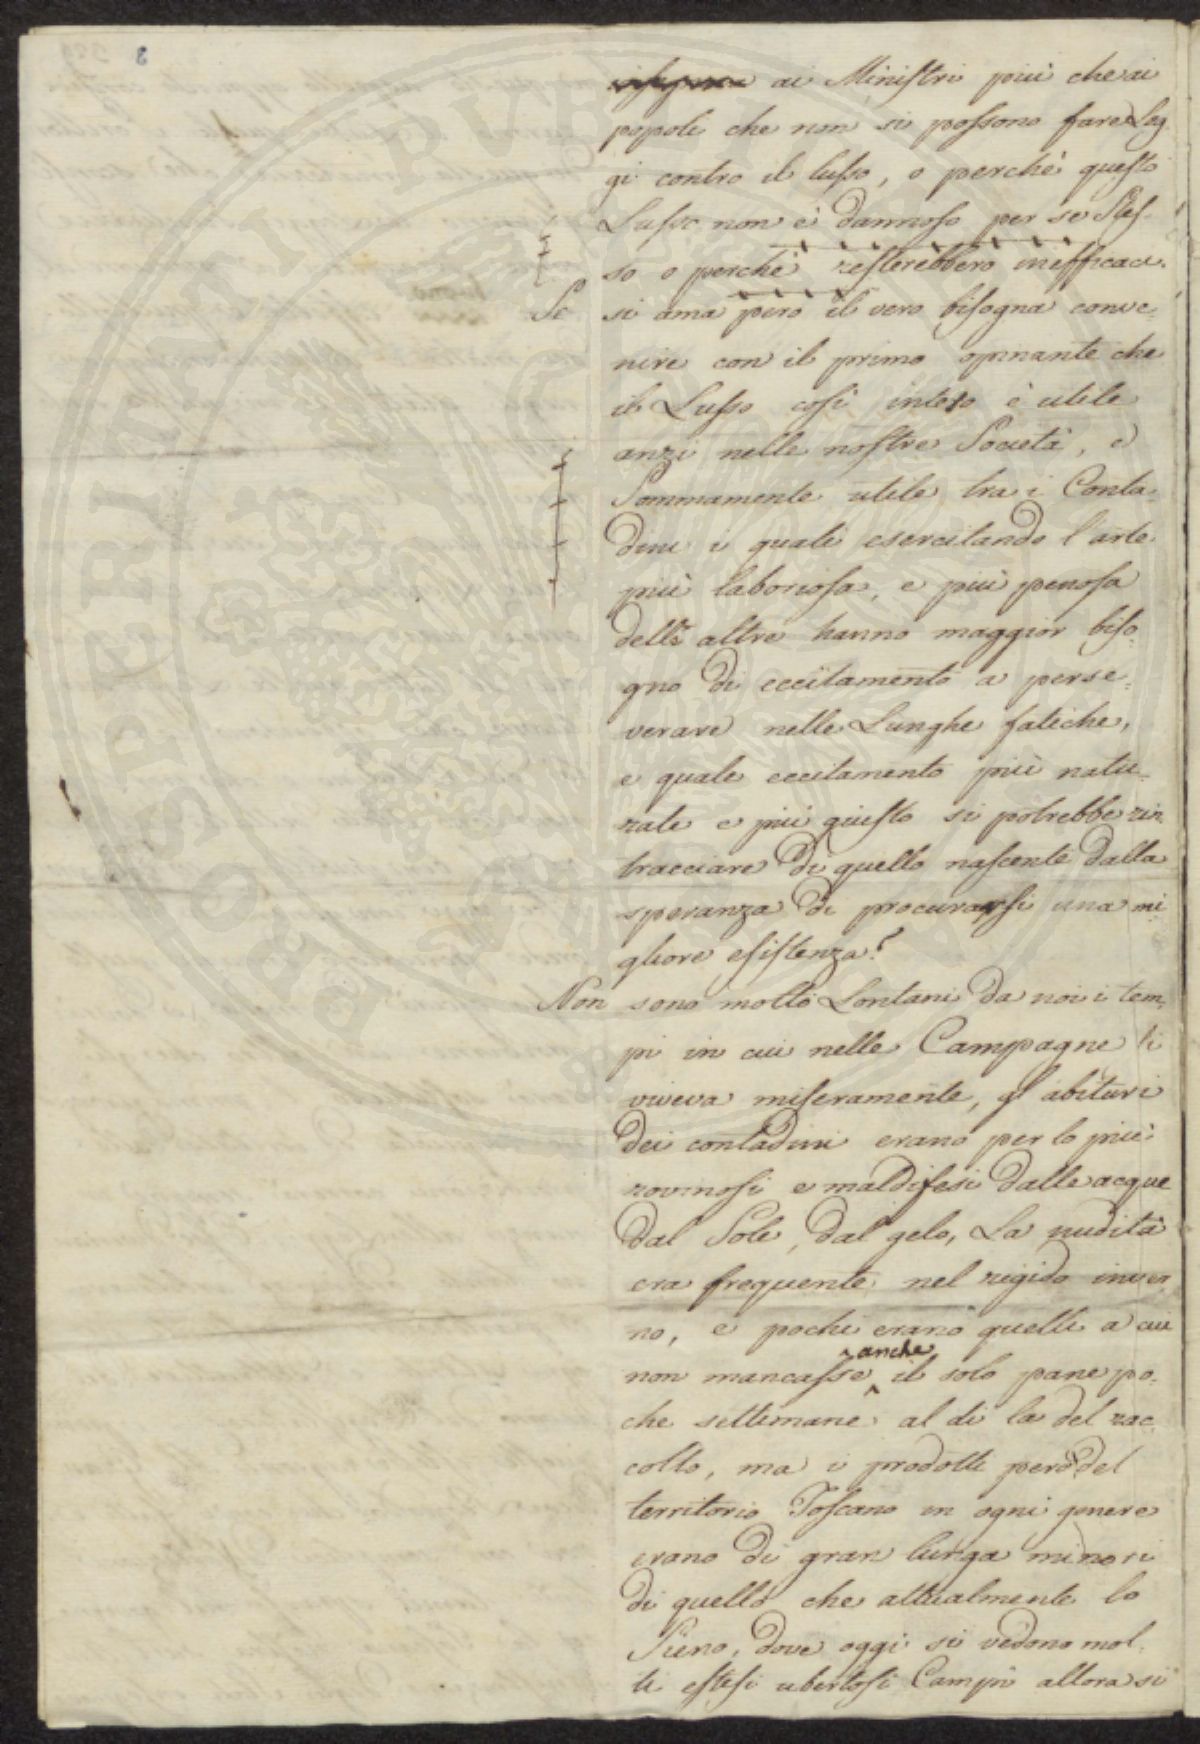 ai Ministri più che ai
popoli che non si possono fare Leg
gi contro il lusso, o perchè questo
Lusso non è dannoso per se stes-
so o perchè resterebbero inefficaci.
Se si ama però il vero bisogna conve-
nire con il primo opinante che
il Lusso così inteso è utile
anzi nelle nostre Società, e
Sommamente utile tra i Conta-
dini i quali esercitando l'arte
più laboriosa, e più penosa
delle altre hanno maggior biso-
gno di eccitamento a perse-
verare nelle Lunghe fatiche,
e quale eccitamento più natu-
rale e più giusto si potrebbe rin-
tracciare di quello nascente dalla
speranza di procurarsi una mi
gliore esistenza?
Non sono molto Lontani da noi i tem-
pi in cui nelle Campagne si
viveva miseramente, gl'abituri
dei contadini erano per lo più
rovinosi e maldifesi dalle acque
dal Sole, dal gelo, La nudità
era frequente nel rigido inver-
no, e pochi erano quelli a cui
non mancasse anche il solo pane po-
che settimane al di la del rac-
colto, ma i prodotti però del
territorio Toscano in ogni genere
erano di gran lunga minori
di quello che attualmente lo
Sieno, dove oggi si vedono mol-
ti estesi ubertosi Campi allora si